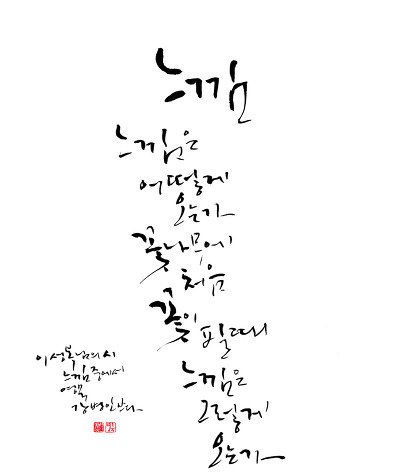 느낌
느낌은
어떻게
오는가
꽃나무에
처음
꽃이
필때
느낌은
그렇게
오는가
이성복님의 시
느낌 중에서